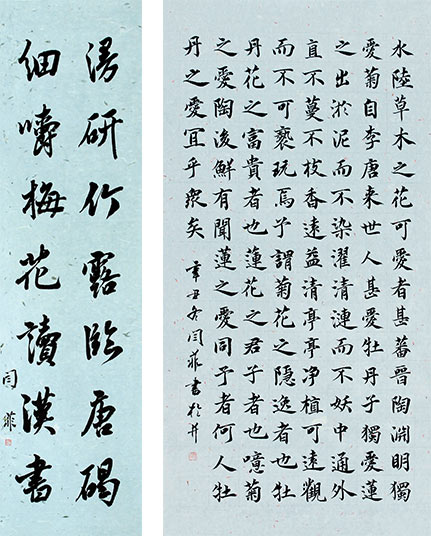 水陸草木之花可愛者甚蕃晉陶淵明獨
愛菊自李唐来世人甚愛牡丹予獨愛蓮
之出於泥而不染濯清漣而不妖中通外
直不蔓不枝香遠益清亭亭净植可遠觀
而不可褻玩焉予謂菊花之隱逸者也牡
丹花之富貴者也蓮花之君子者也噫菊
之愛陶後鮮有聞蓮之愛同予者何人牡
丹之愛宜乎衆矣 辛丑冬闫菲書於并
漫研竹露臨唐碣
細嚼梅花讀漢書
闫菲